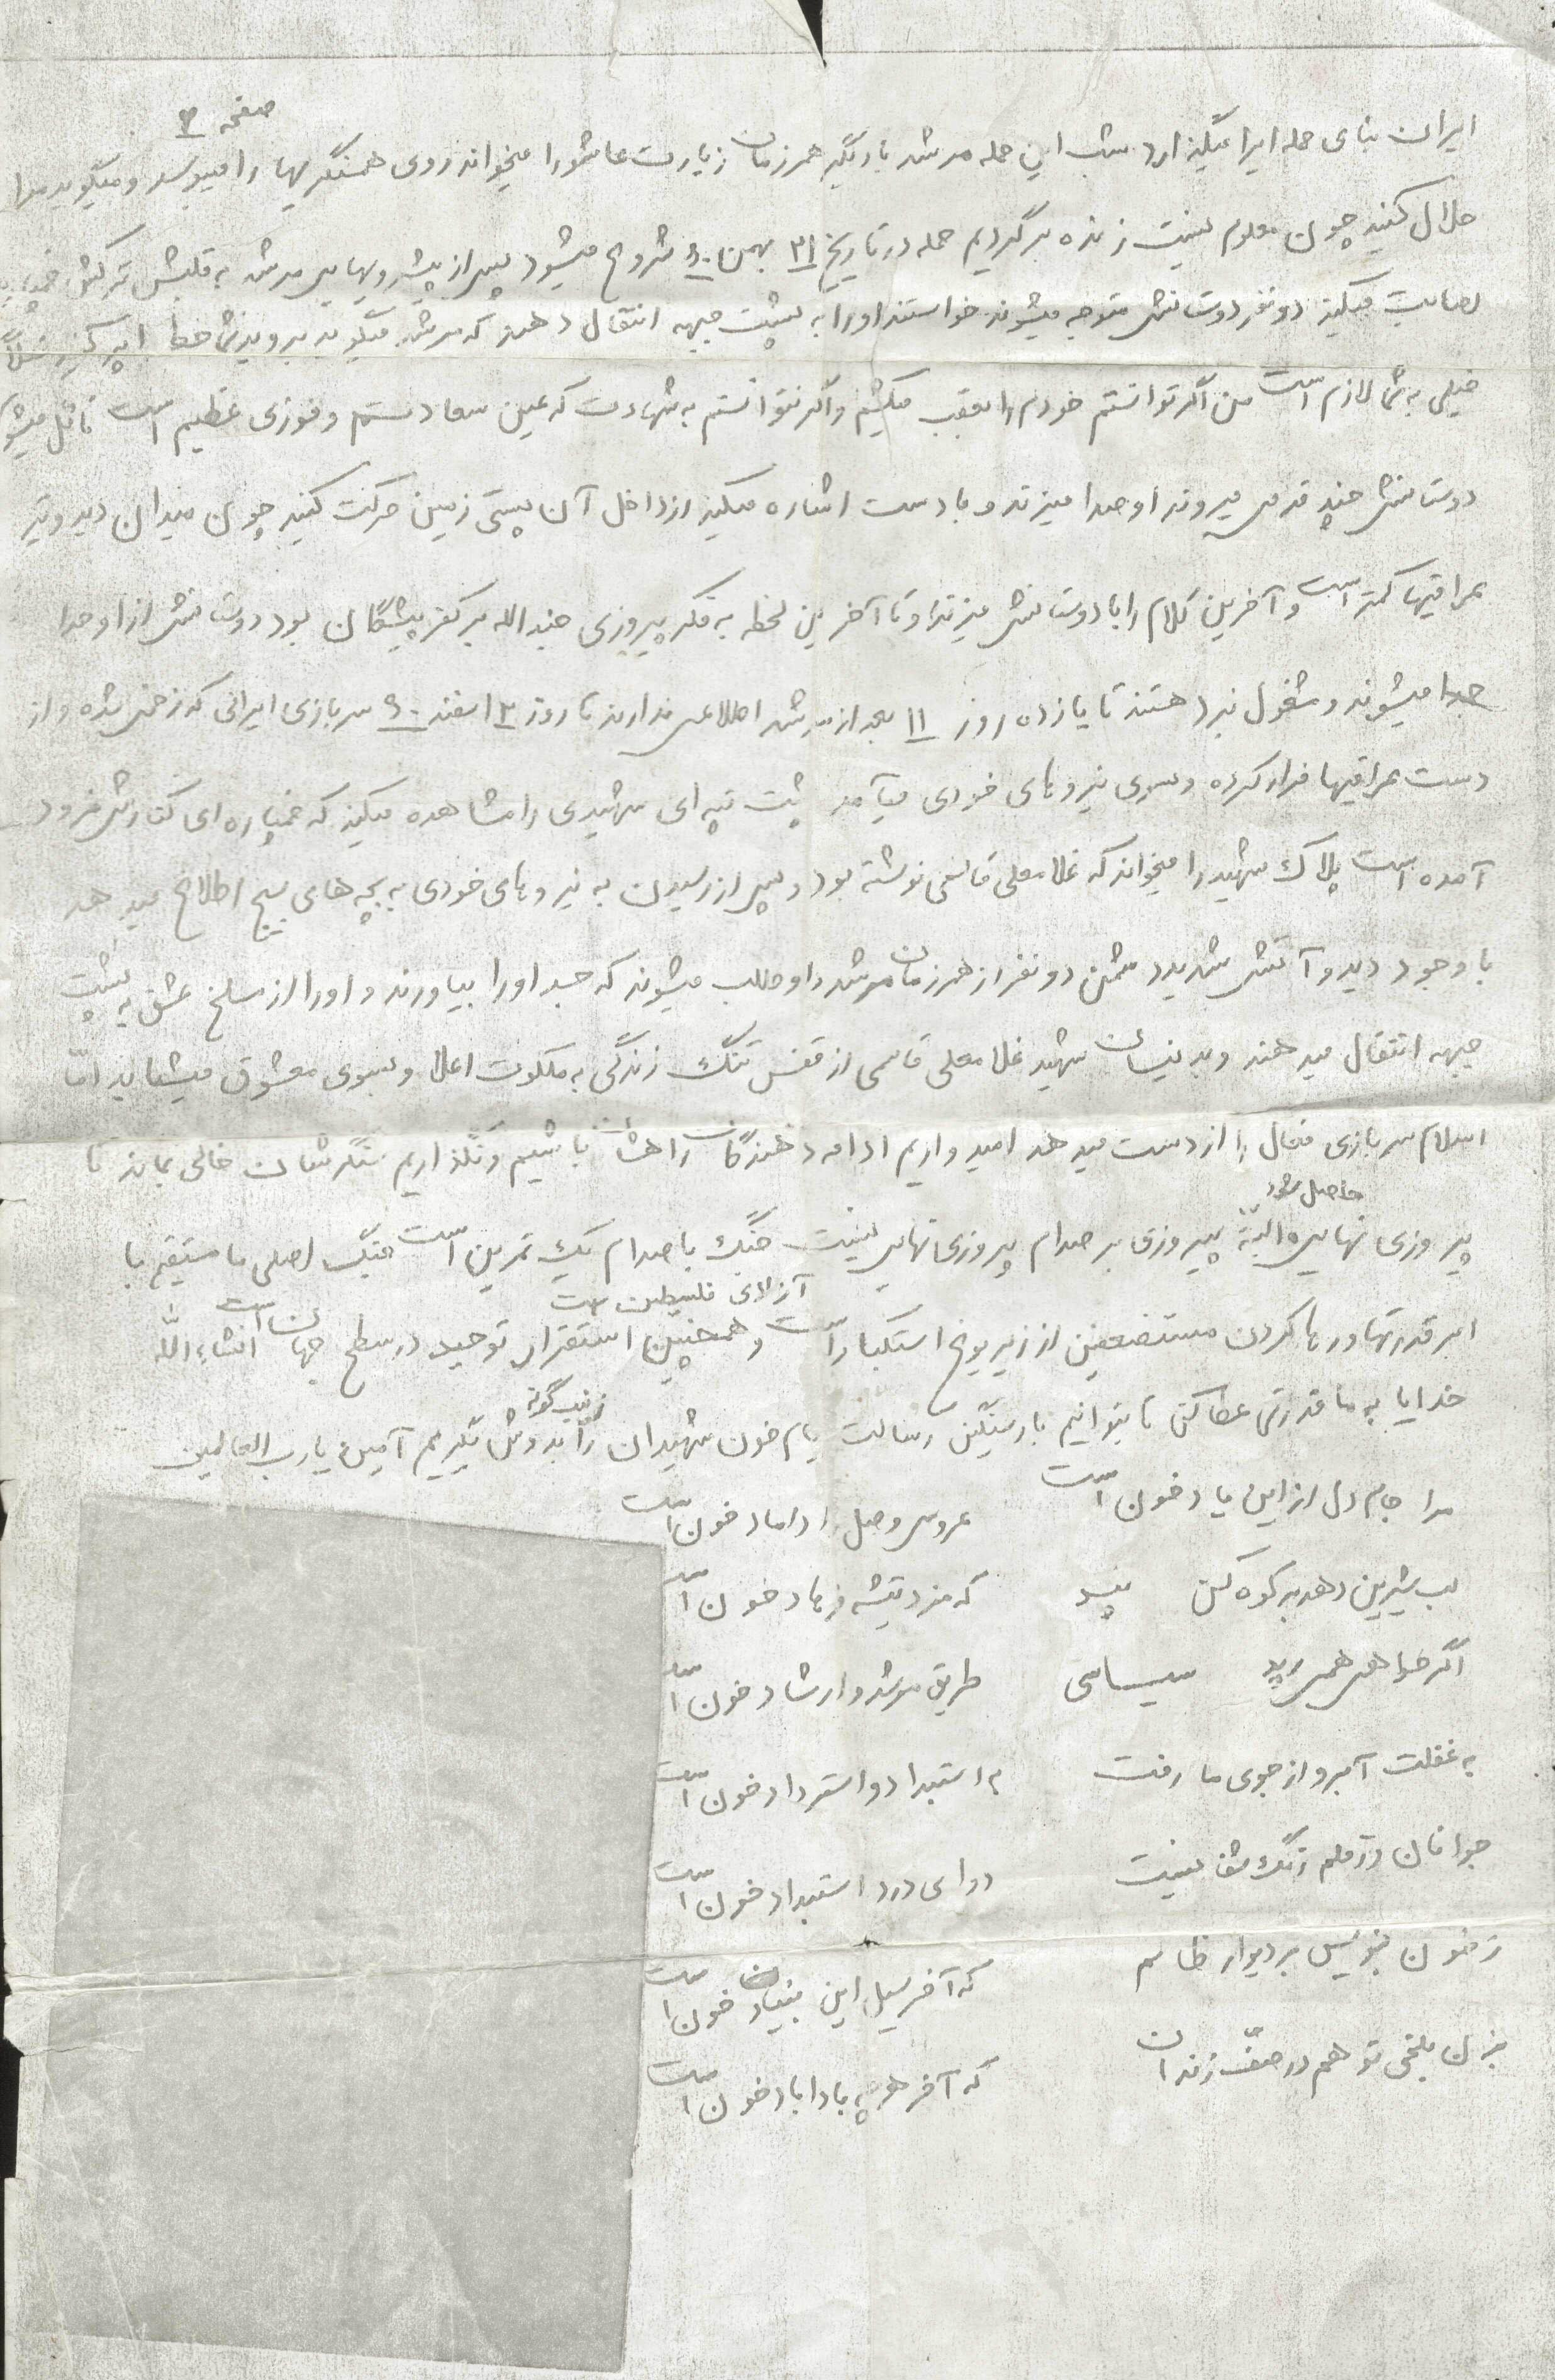 صفحه ۳
ایران بنای حمله ایرا میگذارد. شب این حمله مرشد با دیگر همرزمان زیارت عاشورا میخواند روی همسنگریها را میبوسد و میگوید مرا
حلال کنید چون معلوم نیست زنده برگردیم حمله در تاریخ ۲۱ بهمن ۶۰ شروع میشود پس از پیشرویهایی مرشد به قلبش ترکش
اصابت میکند دو نفر دوستانش متوجه میشوند خواستند او را به پشت جبهه انتقال دهند که مرشد میگوید بروید شما خط را پر کنید
خیلی به شما لازم است من اگر توانستم خودم را بعقب میکشم و اگر نتوانستم به شهادت که عین سعادتم و فوزی عظیم است نائل میشوم
دوستانش چند قدمی میروند او صدا میزند و با دست اشاره میکند از داخل آن پستی زمین حرکت کنید چون میدان دید و تیر
عراقیها کمتر است و آخرین کلام را با دوستانش میزند و تا آخرین لحظه به فکر پیروزی جندالله بر کفر پیشگان بود دوستانش از او جدا
جدا میشوند و مشغول نبرد هستند تا یازده روز ۱۱ بعد از مرشد اطلاعی ندارند تا روز ۳ اسفند ۶۰ سربازی ایرانی که زخمی شده و از
دست عراقیها فرار کرده و بسوی نیروهای خودی میآمد پشت تپه ای شهیدی را مشاهده میکند که خمپاره ای کنارش فرود
آمده است پلاک شهید را میخواند که غلامعلی قاسمی نوشته بود و پس از رسیدن به نیروهای خودی به بچه های بسیج اطلاع میدهد
با وجود دید و آتش شدید دشمن دو نفر از همرزمان مرشد داوطلب میشوند که جسد او را بیاورند و او را از مسلخ عشق به پشت
جبهه انتقال میدهند و بدینسان شهید غلامعلی قاسمی از قفس تنگ زندگی به ملکوت اعلا و بسوی معشوق میشتابد امّا
اسلام سربازی فعال را از دست میدهد امیدواریم ادامه دهندگان راهشان باشیم و نگذاریم سنگرشان خالی بماند تا
پیروزی نهایی حاصل شود البتّه پیروزی بر صدام پیروزی نهایی نیست جنگ با صدام یک تمرین است جنگ اصلی ما مستقیم با
ابر قدرتها و رها کردن مستضعفین از زیر یوغ استکبار است و آزادی فلسطین ست همچنین استقرار توحید در سطح جهان است انشاءالله
خدایا به ما قدرتی عطا کن تا بتوانیم بار سنگین رسالت پیام خون شهیدان را زینب گونه بدوش بگیریم آمین یا رب العالمین
مرا جام دل از این یاد خون است عروس وصل را داماد خون است
لب شیرین دهد بر کوه کن پند که مزد تیشه فرهاد خون است
اگر خواهی همی سیاسی طریق مرشد و ارشاد خون است
به غفلت آبرو از جوی ما رفت به استبداد و استرداد خون است
جوانان در قلم رنگ شفا نیست دوای درد استبداد خون است
ز خون بنویس بر دیوار ظالم که آخر سیل این بنیان خون است
بزن بلخی تو هم در صفّ زندان که آخر هر چه بادا باد خون است